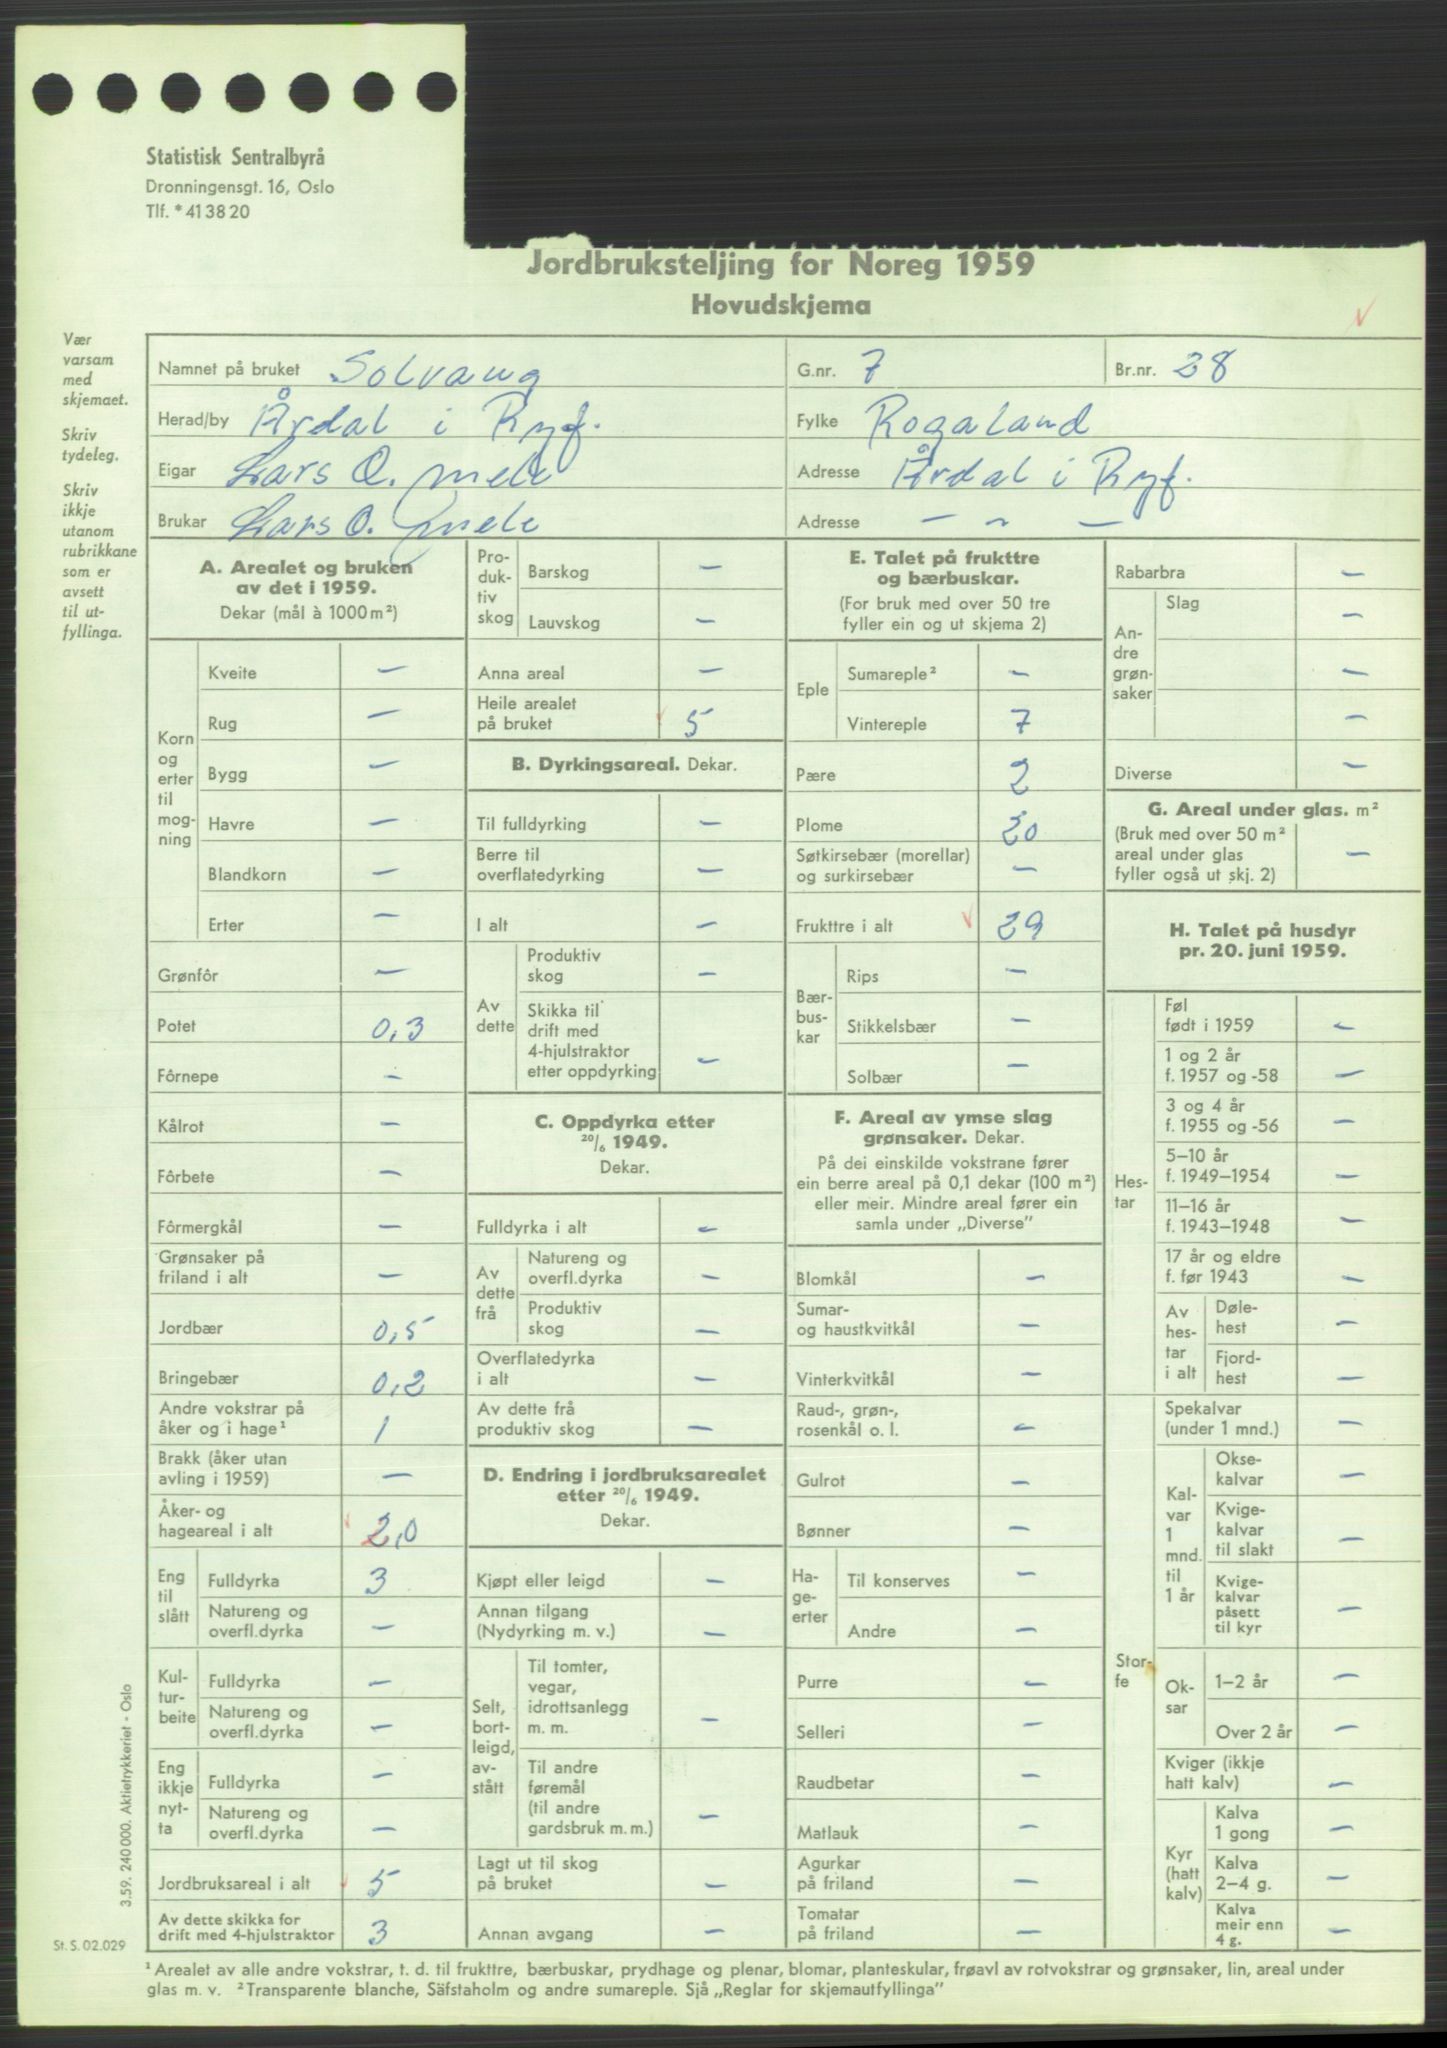 Statistisk Sentralbyrå
Dronningensgt. 16, Oslo
Tlf. *41 38 20
Jordbruksteljing for Noreg 1959
Hovudskjema
Vær
varsam
med
skjemaet.
Skriv
tydeleg.
Skriv
ikkje
utanom
rubrikkane
som er
avsett
til ut-
fyllinga.
Namnet på bruket Solvang G.nr. 7 Br.nr. 28
Herad/by Årdal i Ryf. Fylke Rogaland
Eigar Lars O. Mele Adresse Årdal i Ryf.
Brukar Lars O. Mele Adresse — „ —
A. Arealet og bruken
av det i 1959.
Dekar (mål à 1000 m²)
Korn
og
erter
til
mog-
ning
Kveite —
Rug —
Bygg —
Havre —
Blandkorn —
Erter —
Grønfôr —
Potet 0,3
Fôrnepe —
Kålrot —
Fôrbete —
Fôrmergkål —
Grønsaker på
friland i alt —
Jordbær 0,5
Bringebær 0,2
Andre vokstrar på
åker og i hage¹ 1
Brakk (åker utan
avling i 1959) —
Åker- og
hageareal i alt 2,0
Eng
til
slått
Fulldyrka 3
Natureng og
overfl.dyrka —
Kul-
tur-
beite
Fulldyrka —
Natureng og
overfl.dyrka —
Eng
ikkje
nyt-
ta
Fulldyrka —
Natureng og
overfl.dyrka —
Jordbruksareal i alt 5
Av dette skikka for
drift med 4-hjulstraktor 3
Pro-
duk-
tiv
skog
Barskog —
Lauvskog —
Anna areal —
Heile arealet
på bruket 5
B. Dyrkingsareal. Dekar.
Til fulldyrking —
Berre til
overflatedyrking —
I alt —
Av
dette
Produktiv
skog —
Skikka til
drift med
4-hjulstraktor
etter oppdyrking —
C. Oppdyrka etter
20/6 1949.
Dekar.
Fulldyrka i alt —
Av
dette
frå
Natureng og
overfl.dyrka —
Produktiv
skog —
Overflatedyrka
i alt —
Av dette frå
produktiv skog —
D. Endring i jordbruksarealet
etter 20/6 1949.
Dekar.
Kjøpt eller leigd —
Annan tilgang
(Nydyrking m. v.) —
Selt,
bort-
leigd,
av-
stått
Til tomter,
vegar,
idrottsanlegg
m. m. —
Til andre
føremål
(til andre
gardsbruk m. m.) —
Lagt ut til skog
på bruket —
Annan avgang —
E. Talet på frukttre
og bærbuskar.
(For bruk med over 50 tre
fyller ein og ut skjema 2)
Eple
Sumareple² —
Vintereple 7
Pære 2
Plome 20
Søtkirsebær (morellar)
og surkirsebær —
Frukttre i alt 29
Bær-
bus-
kar
Rips —
Stikkelsbær —
Solbær —
F. Areal av ymse slag
grønsaker. Dekar.
På dei einskilde vokstrane fører
ein berre areal på 0,1 dekar (100 m²)
eller meir. Mindre areal fører ein
samla under „Diverse”
Blomkål —
Sumar-
og haustkvitkål —
Vinterkvitkål —
Raud-, grøn-,
rosenkål o. l. —
Gulrot —
Bønner —
Ha-
ge-
erter
Til konserves —
Andre —
Purre —
Selleri —
Raudbetar —
Matlauk —
Agurkar
på friland —
Tomatar
på friland —
Rabarbra —
An-
dre
grøn-
saker
Slag —
—
—
Diverse —
G. Areal under glas. m²
(Bruk med over 50 m²
areal under glas
fyller også ut skj. 2) —
H. Talet på husdyr
pr. 20. juni 1959.
Hes-
tar
Føl
født i 1959 —
1 og 2 år
f. 1957 og -58 —
3 og 4 år
f. 1955 og -56 —
5–10 år
f. 1949–1954 —
11–16 år
f. 1943–1948 —
17 år og eldre
f. før 1943 —
Av
hes-
tar
i alt
Døle-
hest —
Fjord-
hest —
Stor-
fe
Spekalvar
(under 1 mnd.) —
Kal-
var
1
mnd.
til
1 år
Okse-
kalvar —
Kvige-
kalvar
til slakt —
Kvige-
kalvar
påsett
til kyr —
Ok-
sar
1–2 år —
Over 2 år —
Kviger (ikkje
hatt kalv) —
Kyr
(hatt
kalv)
Kalva
1 gong —
Kalva
2–4 g. —
Kalva
meir enn
4 g. —
3.59. 240 000. Aktietrykkeriet - Oslo
St. S. 02.029
¹ Arealet av alle andre vokstrar, t. d. til frukttre, bærbuskar, prydhage og plenar, blomar, planteskular, frøavl av rotvokstrar og grønsaker, lin, areal under
glas m. v. ² Transparente blanche, Säfstaholm og andre sumareple. Sjå „Reglar for skjemautfyllinga”